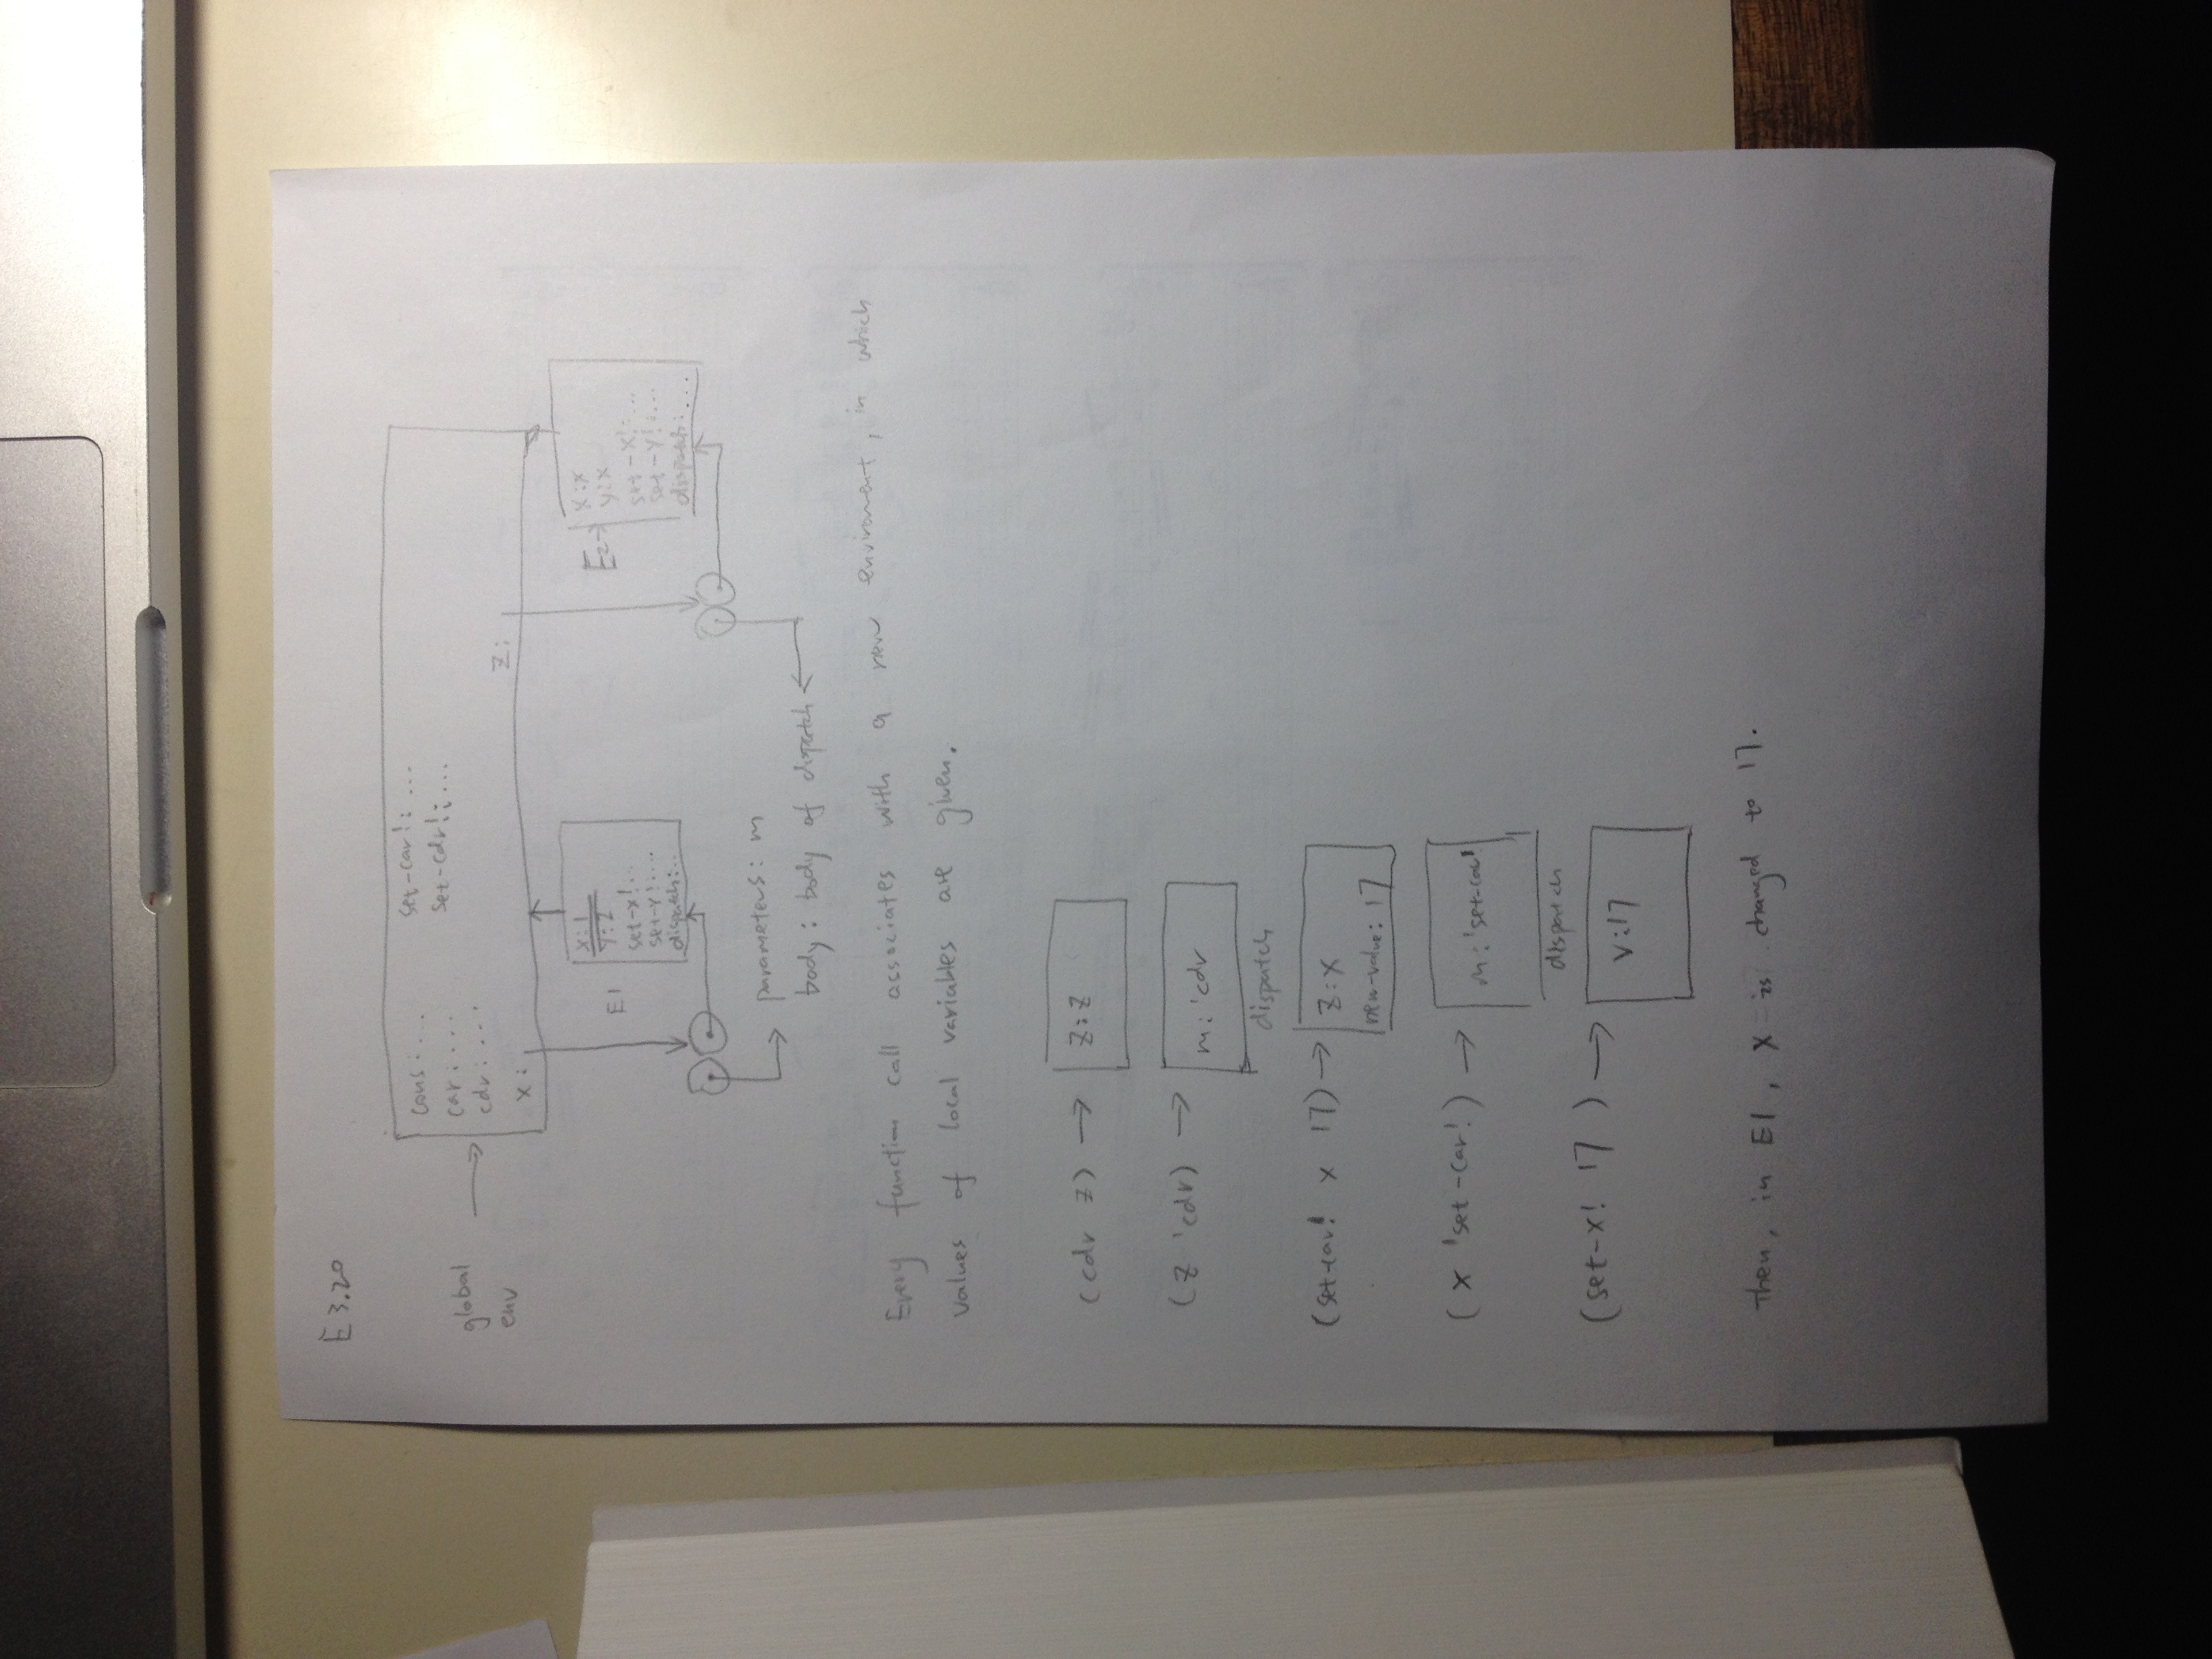 E 3.20
cons: ... set-car!: ...
car: ... set-cdr!: ...
global
cdr: ...
env
x: z:
E1
x:1
y:2
set-x!...
set-y!:...
dispatch:..
E2
x:x
y:x
set-x!:...
set-y!:...
dispatch:...
parameters: m
body: body of dispatch
Every function call associates with a new enviroment, in which
values of local variables are given.
(cdr z) → z:z
(z 'cdr) → m: 'cdr
dispatch
(set-car! x 17) → z:x
new-value: 17
(x 'set-car!) → m: 'set-car!
dispatch
(set-x! 17 ) → v:17
Then, in E1, x is changed to 17.